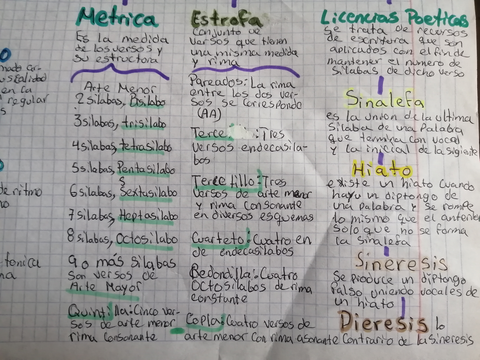 Metrica
Es la medida
de los versos y
su estructora
Arte Menor
2 silabas, Bisilabo
3 silabas, trisilabo
4 silabas, tetrasilabo
5 silabas, Pentasilabo
6 silabas, Sextusilabo
7 silabas, Heptasilabo
8 silabas, Octosilabo
9 o más silabas
son versos de
Arte Mayor
Quintilla: Cinco ver-
sos de arte menor
rima consonante
Estrofa
Conjunto de
versos que tienen
una misma medida
y rima
Pareados: La rima
entre los dos ver-
sos se correspondo
(AA)
Terce : Tres
versos endecasila-
bos
Tercetillo: Tres
versos de arte menor
y rima consonante
en diversos esquemas
Cuarteto: Cuatro en
de endecasilabos
Redondilla: Cuatro
octosilabos de rima
constante
Copla: Cuatro versos de
arte menor con rima asonante
Licencias Poeticas
Se trata de recursos
de escritura que son
aplicados con el fin de
mantener el numero de
silabas de dicho verso
Sinalefa
es la union de la ultima
silaba de una palaba
que termina con vocal
y la inicial de la sigiente
Hiato
existe un hiato cuando
hay un diptongo de
una palabra y se rompe
lo mismo que el anterior
solo que no se forma
la sinalefa
Sineresis
Se produce un diptongo
falso uniendo vocales de
un hiato
Dieresis lo
contrario de la sineresis
regular
de ritmo
tonica